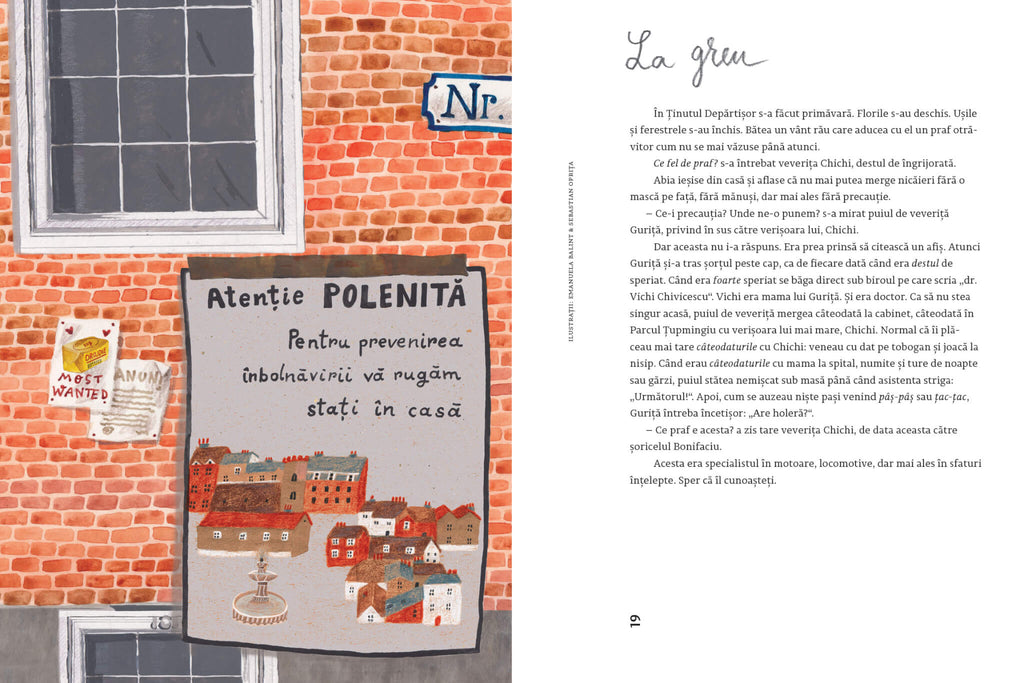 Nr.
Atenție POLENITĂ
Pentru prevenirea
înbolnăvirii vă rugăm
stați în casă
DROJDIE
MOST
WANTED
ANUNȚ
La greu
În Ținutul Depărtișor s-a făcut primăvară. Florile s-au deschis. Ușile
și ferestrele s-au închis. Bătea un vânt rău care aducea cu el un praf otră-
vitor cum nu se mai văzuse până atunci.
Ce fel de praf? s-a întrebat veverița Chichi, destul de îngrijorată.
Abia ieșise din casă și aflase că nu mai putea merge nicăieri fără o
mască pe față, fără mănuși, dar mai ales fără precauție.
– Ce-i precauția? Unde ne-o punem? s-a mirat puiul de veveriță
Guriță, privind în sus către verișoara lui, Chichi.
Dar aceasta nu i-a răspuns. Era prea prinsă să citească un afiș. Atunci
Guriță și-a tras șorțul peste cap, ca de fiecare dată când era destul de
speriat. Când era foarte speriat se băga direct sub biroul pe care scria „dr.
Vichi Chivicescu“. Vichi era mama lui Guriță. Și era doctor. Ca să nu stea
singur acasă, puiul de veveriță mergea câteodată la cabinet, câteodată în
Parcul Țupmingiu cu verișoara lui mai mare, Chichi. Normal că îi plă-
ceau mai tare câteodaturile cu Chichi: veneau cu dat pe tobogan și joacă la
nisip. Când erau câteodaturile cu mama la spital, numite și ture de noapte
sau gărzi, puiul stătea nemișcat sub masă până când asistenta striga:
„Următorul!“. Apoi, cum se auzeau niște pași venind pâș-pâș sau țac-țac,
Guriță întreba încetișor: „Are holeră?“.
– Ce praf e acesta? a zis tare veverița Chichi, de data aceasta către
șoricelul Bonifaciu.
Acesta era specialistul în motoare, locomotive, dar mai ales în sfaturi
înțelepte. Sper că îl cunoașteți.
ILUSTRAȚII: EMANUELA BALINT & SEBASTIAN OPRIȚA
19